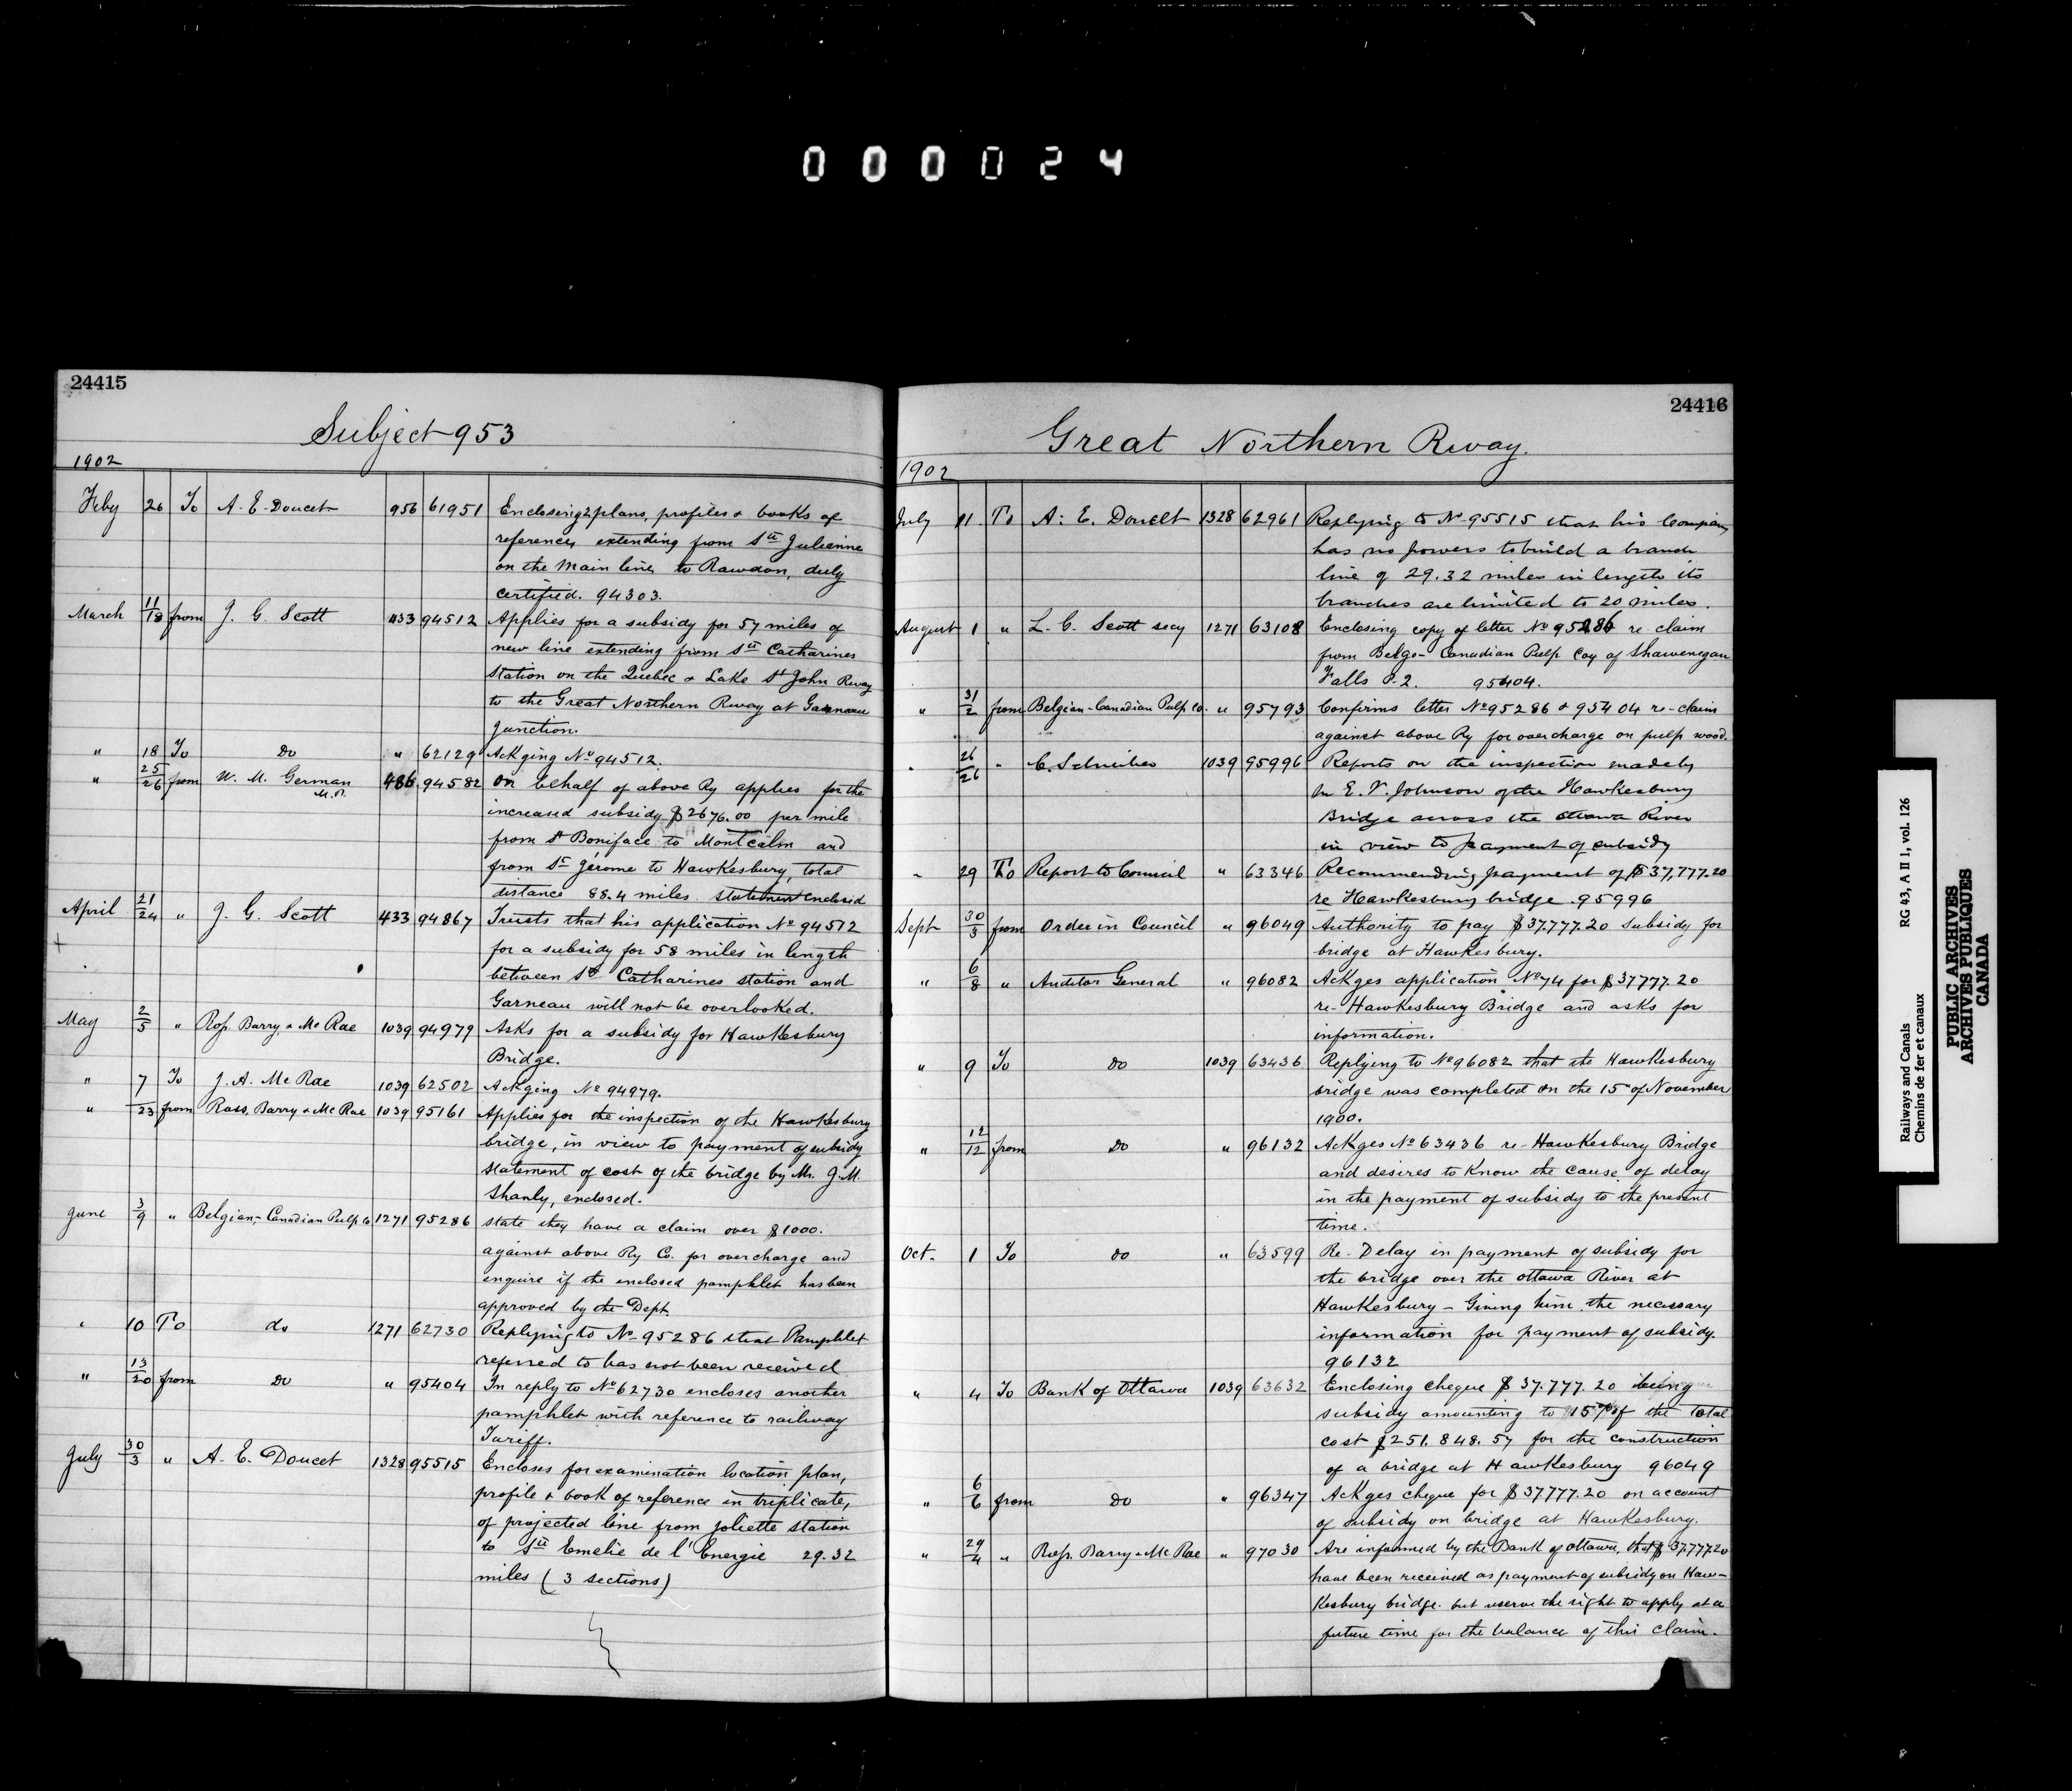 000024
24415
Subject 953
1902
Feby 26 To A. E. Doucet 956 61951 Enclosing 2 plans, profiles & books of
reference, extending from Ste Julienne
on the Main line, to Rawdon, duly
certified. 94303.
March 11/18 from J. G. Scott 433 94512 Applies for a subsidy for 57 miles of
new line extending from Ste Catharines
station on the Quebec & Lake St John Rway
to the Great Northern Rway at Garneau
Junction.
" 18 To Do " 62129 Ackging No 94512.
" 25/26 from W. M. German M.P. 486 94582 On behalf of above Ry applies for the
increased subsidy $2676.00 per mile
from St Boniface to Montcalm and
from St Jérome to Hawkesbury, total
distance 88.4 miles. statement enclosed
April 21/24 " J. G. Scott 433 94867 Trusts that his application No 94512
for a subsidy for 58 miles in length
between Ste Catharines station and
Garneau will not be overlooked.
May 2/5 " Ross, Barry & Mc Rae 1039 94979 Asks for a subsidy for Hawkesbury
Bridge.
" 7 To J. A. Mc Rae 1039 62502 Ackging No 94979.
" /23 from Ross, Barry & Mc Rae 1039 95161 Applies for the inspection of the Hawkesbury
bridge, in view to payment of subsidy
statement of cost of the bridge by Mr. J. M.
Shanly, enclosed.
June 3/9 " Belgian-Canadian Pulp Co 1271 95286 state they have a claim over $1000.
against above Ry Co. for overcharge and
enquire if the enclosed pamphlet has been
approved by the Dept.
" 10 To do 1271 62730 Replying to No 95286 that Pamphlet
referred to has not been received
" 13/20 from Do " 95404 In reply to No 62730 encloses another
pamphlet with reference to railway
Tariff.
July 30/3 " A. E. Doucet 1328 95515 Encloses for examination location plan,
profile & book of reference in triplicate,
of projected line from Joliette station
to Ste Emelie de l'Energie 29.32
miles (3 sections)
24416
Great Northern Rway.
1902
July 11 To A. E. Doucet 1328 62961 Replying to No 95515 that his Company
has no powers to build a branch
line of 29.32 miles in length its
branches are limited to 20 miles.
August 1 " L. C. Scott secy 1271 63108 Enclosing copy of letter No 95286 re claim
from Belgo-Canadian Pulp Coy of Shawenegan
Falls P.2. 95404.
" 31/2 from Belgian-Canadian Pulp Co. " 95793 Confirms letter No 95286 & 95404 re-claim
against above Ry for overcharge on pulp wood.
" 26/26 " C. Schreiber 1039 95996 Reports on the inspection made by
Mr E. V. Johnson of the Hawkesbury
Bridge across the Ottawa River
in view to payment of subsidy
" 29 To Report to Council " 63346 Recommending payment of $37,777.20
re Hawkesbury bridge. 95996
Sept 30/3 from Order in Council " 96049 Authority to pay $37.777.20 subsidy for
bridge at Hawkesbury.
" 6/8 " Auditor General " 96082 Ackges application No 74 for $37777.20
re-Hawkesbury Bridge and asks for
information.
" 9 To Do 1039 63436 Replying to No 96082 that the Hawkesbury
bridge was completed on the 15th of November
1900.
" 12/12 from Do " 96132 Ackges No 63436 re-Hawkesbury Bridge
and desires to know the cause of delay
in the payment of subsidy to the present
time.
Oct. 1 To Do " 63599 Re-Delay in payment of subsidy for
the bridge over the Ottawa River at
Hawkesbury – Giving him the necessary
information for payment of subsidy.
96132
" 4 To Bank of Ottawa 1039 63632 Enclosing cheque $37.777.20 being
subsidy amounting to 15% of the total
cost $251.848.57 for the construction
of a bridge at Hawkesbury 96049
" 6/6 from Do " 96347 Ackges cheque for $37777.20 on account
of subsidy on bridge at Hawkesbury.
" 29/4 " Ross, Barry & Mc Rae " 97030 Are informed by the Bank of Ottawa, that $37.777.20
have been received as payment of subsidy on Haw-
kesbury bridge. but reserve the right to apply at a
future time for the balance of this claim.
Railways and Canals RG 43, A II 1, vol. 126
Chemins de fer et canaux
PUBLIC ARCHIVES
ARCHIVES PUBLIQUES
CANADA